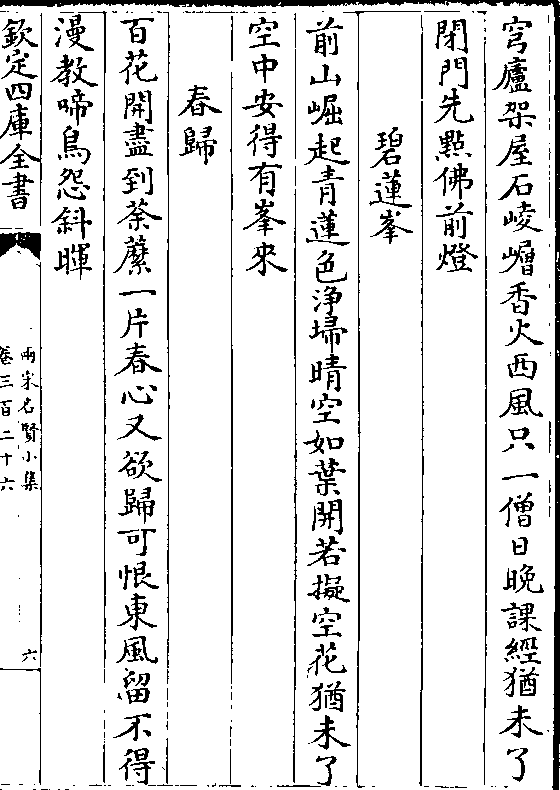 穹廬架屋石崚嶒香火西風只一僧日晚課經猶未了
閉門先點佛前燈
碧蓮峯
前山崛起青蓮色淨埽晴空如葉開若擬空花猶未了
空中安得有峯來
春歸
百花開盡到荼蘼一片春心又欲歸可恨東風留不得
漫教啼鳥怨斜暉
欽定四庫全書
兩宋名賢小集
卷三百二十六
六